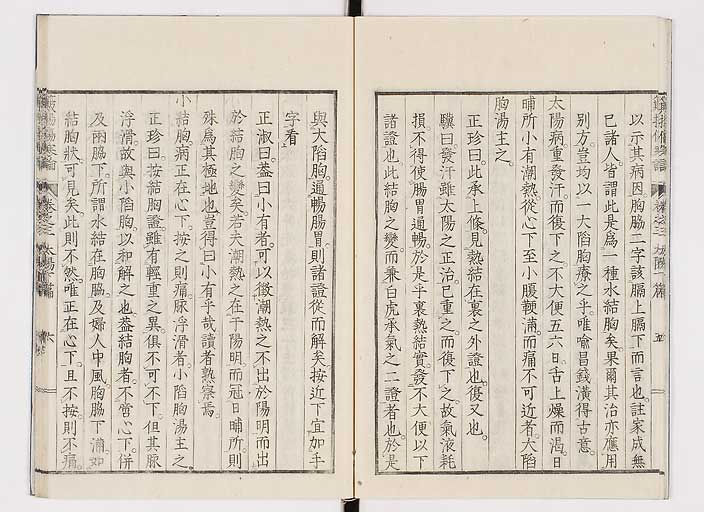 以示其病因胸脇二字該膈上膈下而言也。註家成無
已諸人。皆謂此是爲一種水結胸矣。果爾其治亦應用
別方。豈均以一大陷胸療之乎。唯喻昌錢潢得古意。
太陽病。重發汗。而復下之。不大便五六日。舌上燥而渴。日
晡所小有潮熱。從心下至小腹鞕滿而痛。不可近者。大陷
胸湯主之。
正珍曰。此承上條。見熱結在裏之外證也。復又也。
驥曰。發汗雖太陽之正治。已重之。而復下之。故氣液耗
損。不得使腸胃通暢。於是乎裏熱結實。發不大便以下
諸證也。此結胸之變。而兼白虎承氣之二證者也。於是
與大陷胸。通暢腸胃。則諸證從而解矣。按近下宜加手
字看
正淑曰。蓋曰小有者。可以徵潮熱之不出於陽明。而出
於結胸之變矣。若夫潮熱之在于陽明。而冠日晡所。則
殊爲其極地也。豈得曰小有乎哉。讀者熟察焉。
小結胸。病正在心下。按之則痛。脉浮滑者。小陷胸湯主之。
正珍曰。按結胸證。雖有輕重之異。俱不可不下。但其脉
浮滑。故與小陷胸。以和解之也。蓋結胸者。不啻心下。併
及兩脇下。所謂水結在胸脇。及婦人中風胸脇下滿。如
結胸狀。可見矣。此則不然。唯正在心下。且不按則不痛。